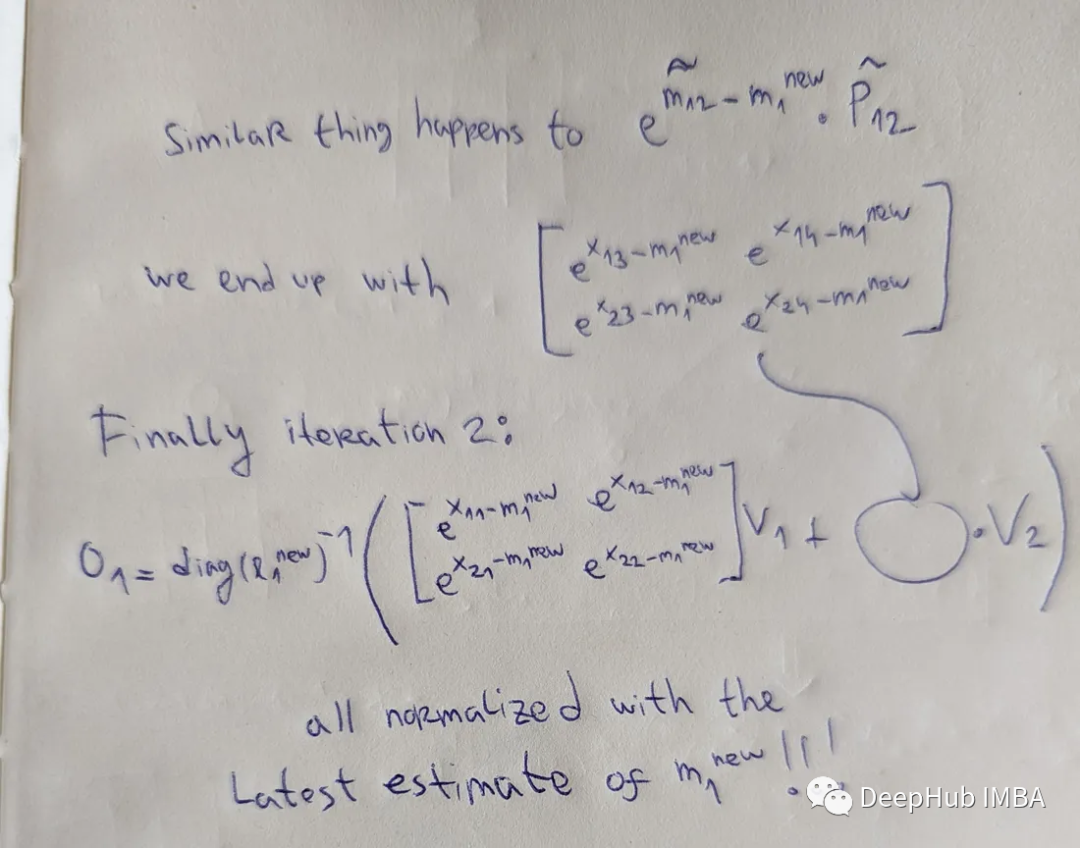 Similar thing happens to e^{m̃₁₂ - m₁^{new}} · P̃₁₂
we end up with [ e^{x₁₃ - m₁^{new}} e^{x₁₄ - m₁^{new}}
e^{x₂₃ - m₁^{new}} e^{x₂₄ - m₁^{new}} ]
Finally iteration 2:
O₁ = diag(l₁^{new})^{-1} ( [ e^{x₁₁ - m₁^{new}} e^{x₁₂ - m₁^{new}}
e^{x₂₁ - m₁^{new}} e^{x₂₂ - m₁^{new}} ] V₁ + ◯ · V₂ )
all normalized with the
Latest estimate of m₁^{new} !!!
DeepHub IMBA